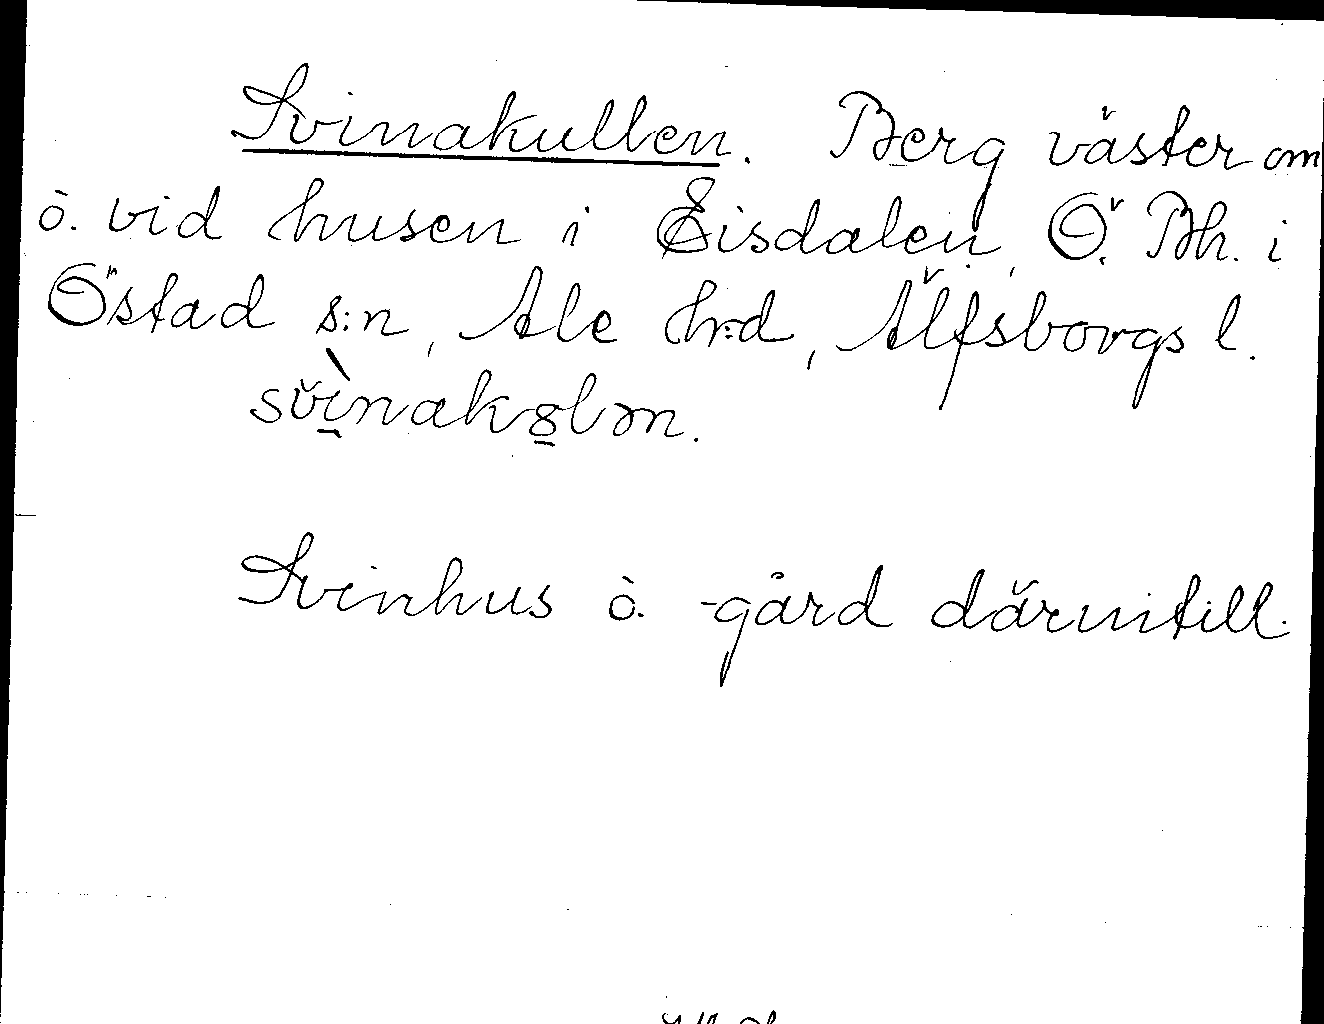 Svinakullen. Berg väster om
ò. vid husen i Eisdalen, Ö. Bh. i
Östad s:n, Ale h:d, Älfsborgs l.
Svinhus ò. -gård därintill.